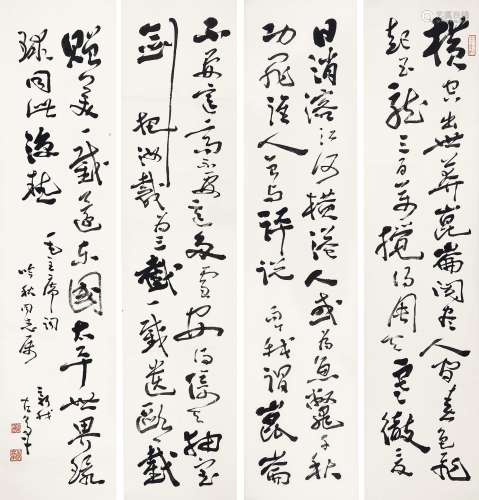 横空出世莽崑崙阅尽人间春色飞
起玉龍三百萬搅得周天寒徹夏
日消溶江河横溢人或为魚鳖千秋
功罪谁人曾与評说而今我谓崑崙
不要这高不要这多雪安得倚天抽宝
剑把汝裁为三截一截遗歐一截
赠美一截还东國太平世界环
球同此凉热
毛主席词
吟秋同志属
新我